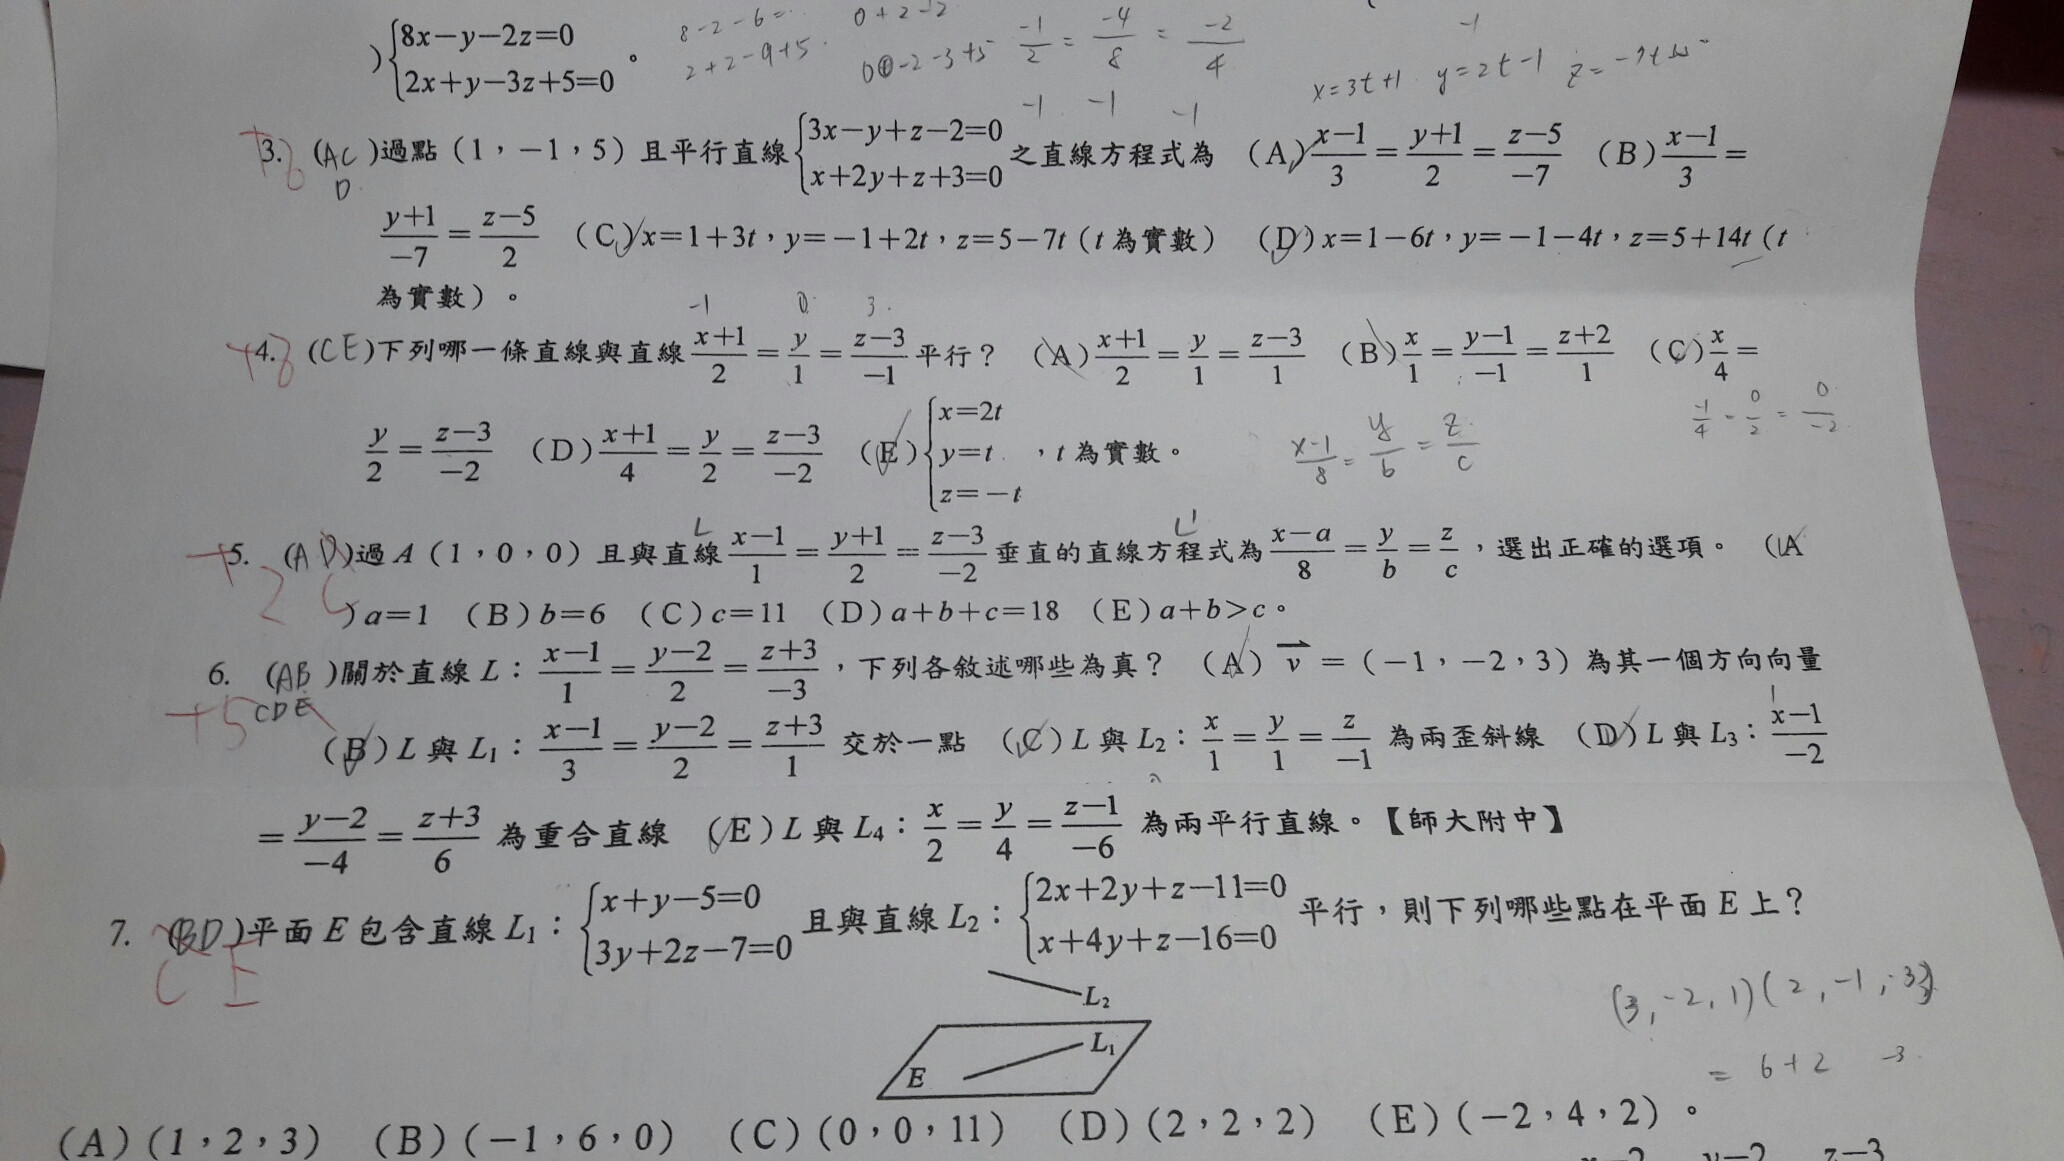 ) { 8x−y−2z=0
2x+y−3z+5=0 。
8-2-6=
2+2-9+5
0+2-2
-1/2 = -4/8 = -2/4
x=3t+1 y=2t-1
-1 -1 -1
+8
3. (ACD)過點(1，−1，5)且平行直線{3x−y+z−2=0
x+2y+z+3=0 之直線方程式為 (A) (x−1)/3 = (y+1)/2 = (z−5)/−7 (B) (x−1)/3 =
(y+1)/−7 = (z−5)/2 (C) x=1+3t，y=−1+2t，z=5−7t (t 為實數) (D) x=1−6t，y=−1−4t，z=5+14t (t
為實數)。
-1 0 3
+8
4. (CE)下列哪一條直線與直線 (x+1)/2 = y/1 = (z−3)/−1 平行？ (A) (x+1)/2 = y/1 = (z−3)/1 (B) x/1 = (y−1)/−1 = (z+2)/1 (C) x/4 =
y/2 = (z−3)/−2 (D) (x+1)/4 = y/2 = (z−3)/−2 (E) {x=2t
y=t
z=−t ，t 為實數。
(x-1)/8 = y/b = z/c
-1/4 = 0/2 = 0/-2
L L'
+2
5. (AD)過 A (1，0，0) 且與直線 (x−1)/1 = (y+1)/2 = (z−3)/−2 垂直的直線方程式為 (x−a)/8 = y/b = z/c ，選出正確的選項。 (A
) a=1 (B) b=6 (C) c=11 (D) a+b+c=18 (E) a+b>c。
+5
6. (ABCDE)關於直線 L： (x−1)/1 = (y−2)/2 = (z+3)/−3 ，下列各敘述哪些為真？ (A) v =(−1，−2，3)為其一個方向向量
(B) L 與 L₁： (x−1)/3 = (y−2)/2 = (z+3)/1 交於一點 (C) L 與 L₂： x/1 = y/1 = z/−1 為兩歪斜線 (D) L 與 L₃： (x−1)/−2
= (y−2)/−4 = (z+3)/6 為重合直線 (E) L 與 L₄： x/2 = y/4 = (z−1)/−6 為兩平行直線。【師大附中】
7. (BD)平面 E 包含直線 L₁：{x+y−5=0
3y+2z−7=0 且與直線 L₂：{2x+2y+z−11=0
x+4y+z−16=0 平行，則下列哪些點在平面 E 上？
C E
L₂
L₁
E
(3,-2,1)(2,-1,-3)
= 6+2 -3
(A)(1，2，3) (B)(−1，6，0) (C)(0，0，11) (D)(2，2，2) (E)(−2，4，2)。
x−2 y−2 z−3